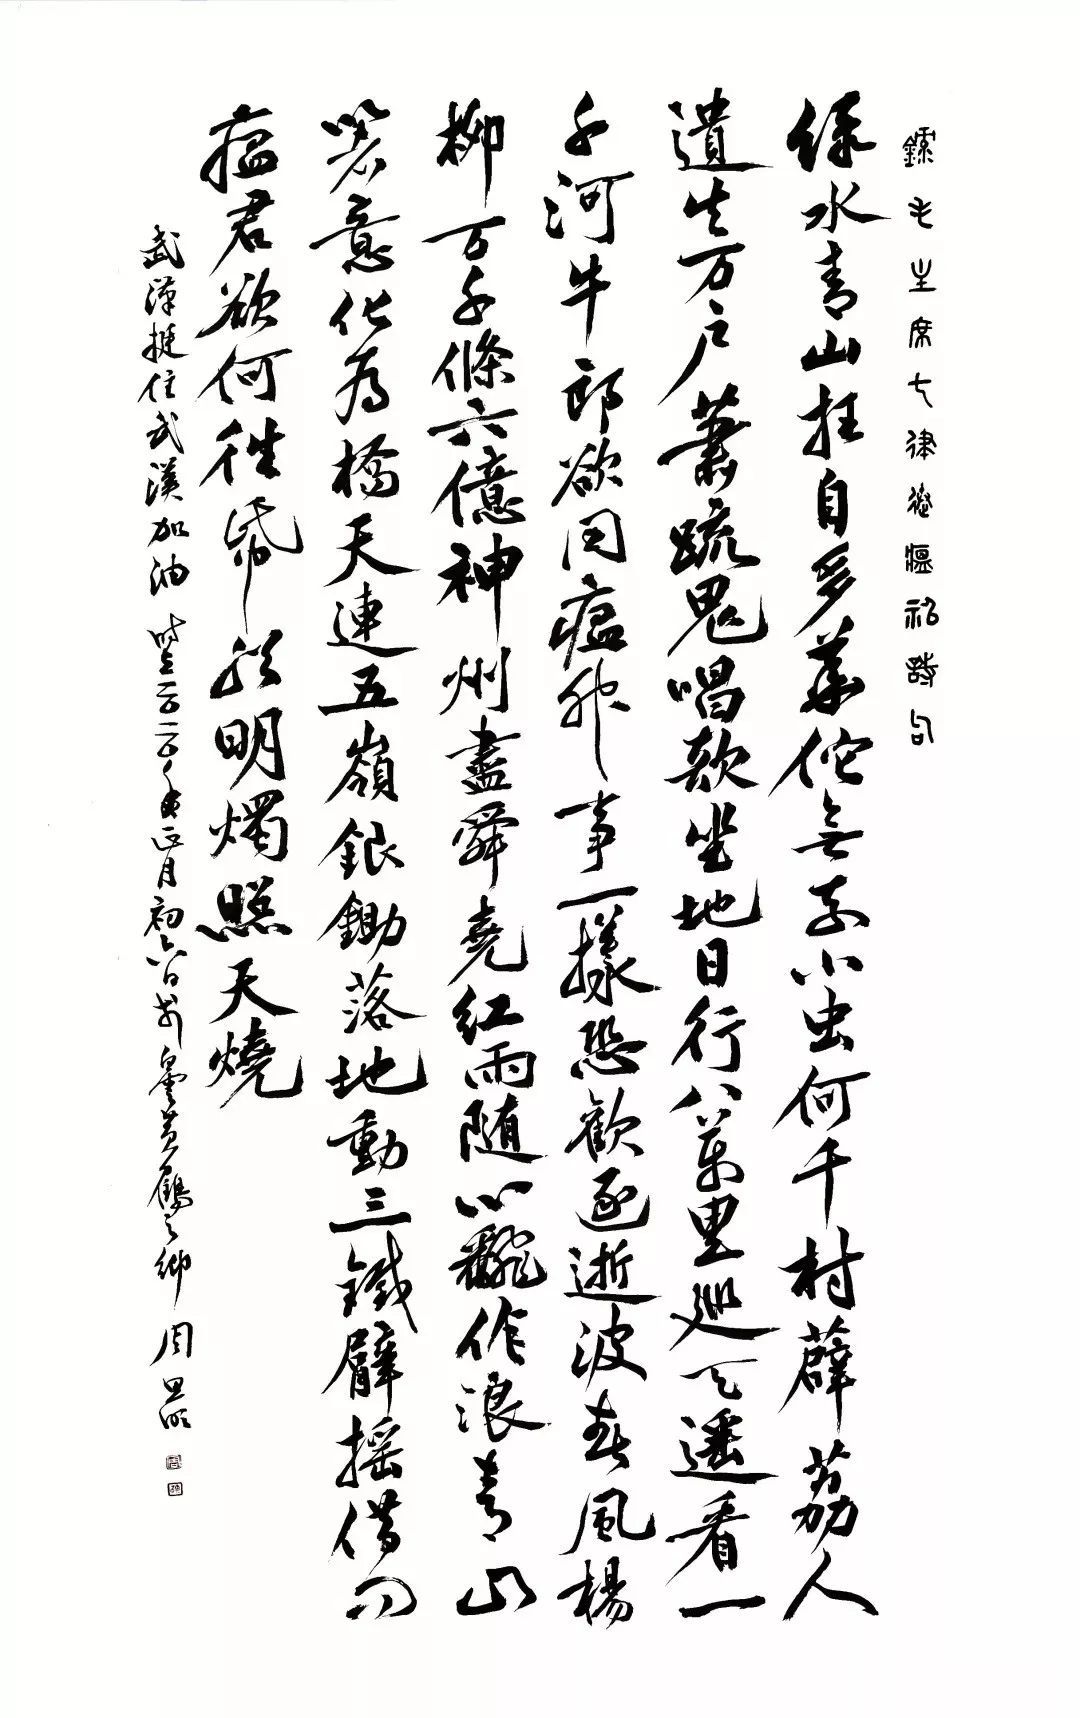 錄毛主席七律送瘟神詩句
綠水青山枉自多華佗無奈小虫何千村薜荔人
遺失万戶蕭疏鬼唱歌坐地日行八萬里巡天遥看一
千河牛郎欲問瘟神事一樣悲歡逐逝波春風楊
柳万千條六億神州盡舜堯紅雨随心翻作浪青山
著意化為橋天連五嶺銀鋤落地動三鐵臂摇借问
瘟君欲何往帋船明燭照天燒
武漢挺住武漢加油 時在二〇二〇年正月初六日於白雲黃鶴之鄉 周